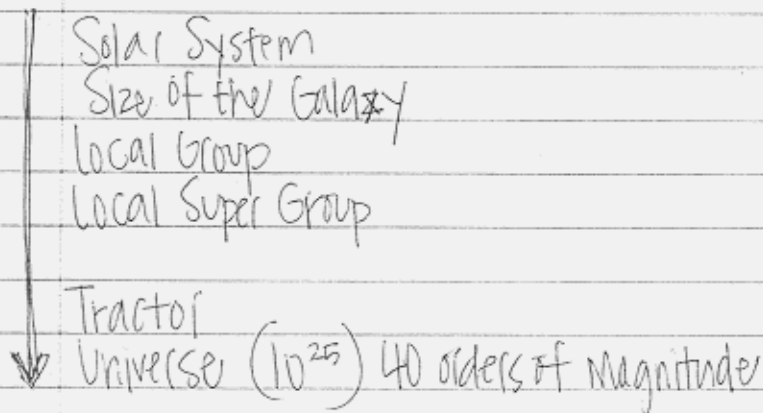 Solar System
Size of the Galaxy
Local Group
Local Super Group
Tractor
Universe (10²⁵) 40 orders of Magnitude